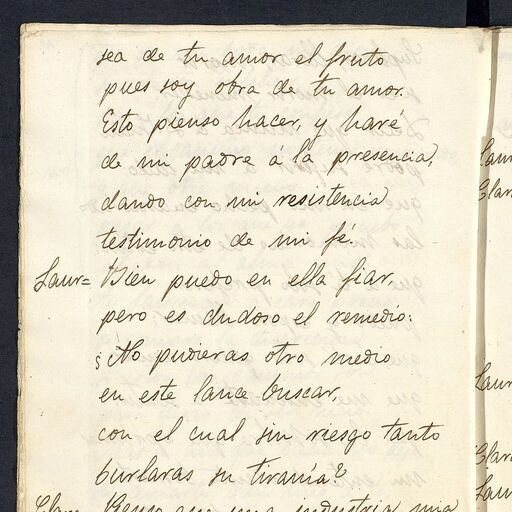 sea de tu amor el fruto
pues soy obra de tu amor.
Esto pienso hacer, y haré
de mi padre á la presencia,
dando con mi resistencia
testimonio de mi fé.
Laur= Bien puedo en ella fiar,
pero es dudoso el remedio:
¿No pudieras otro medio
en este lance buscar,
con el cual sin riesgo tanto
burlaras su tiranía?
una industria
Laur
Clar
Laur
Clar
Laur